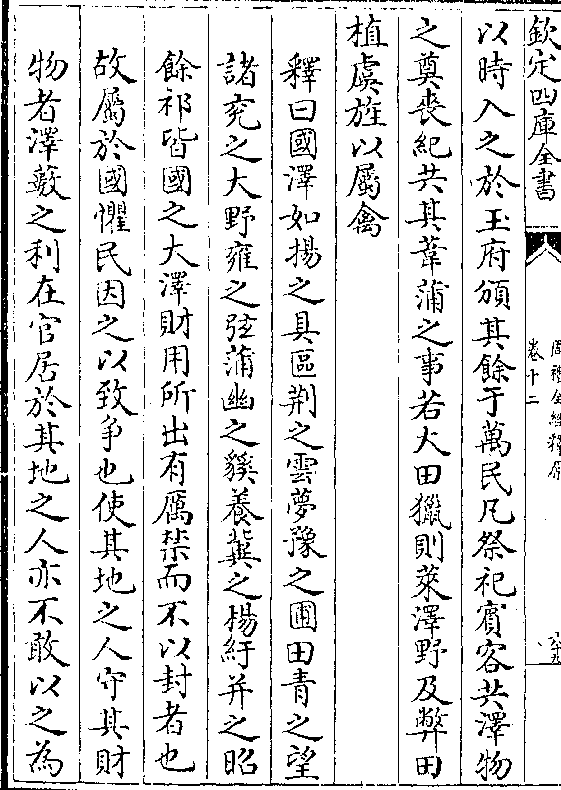 欽定四庫全書
周禮全經釋原
卷十二
以時入之於玉府頒其餘于萬民凡祭祀賓客共澤物
之奠喪紀共其葦蒲之事若大田獵則萊澤野及弊田
植虞旌以屬禽
釋曰國澤如揚之具區荆之雲夢豫之圃田青之望
諸兖之大野雍之弦蒲幽之貕養冀之楊紆并之昭
餘祁皆國之大澤財用所出有厲禁而不以封者也
故屬於國懼民因之以致争也使其地之人守其財
物者澤藪之利在官居於其地之人亦不敢以之為